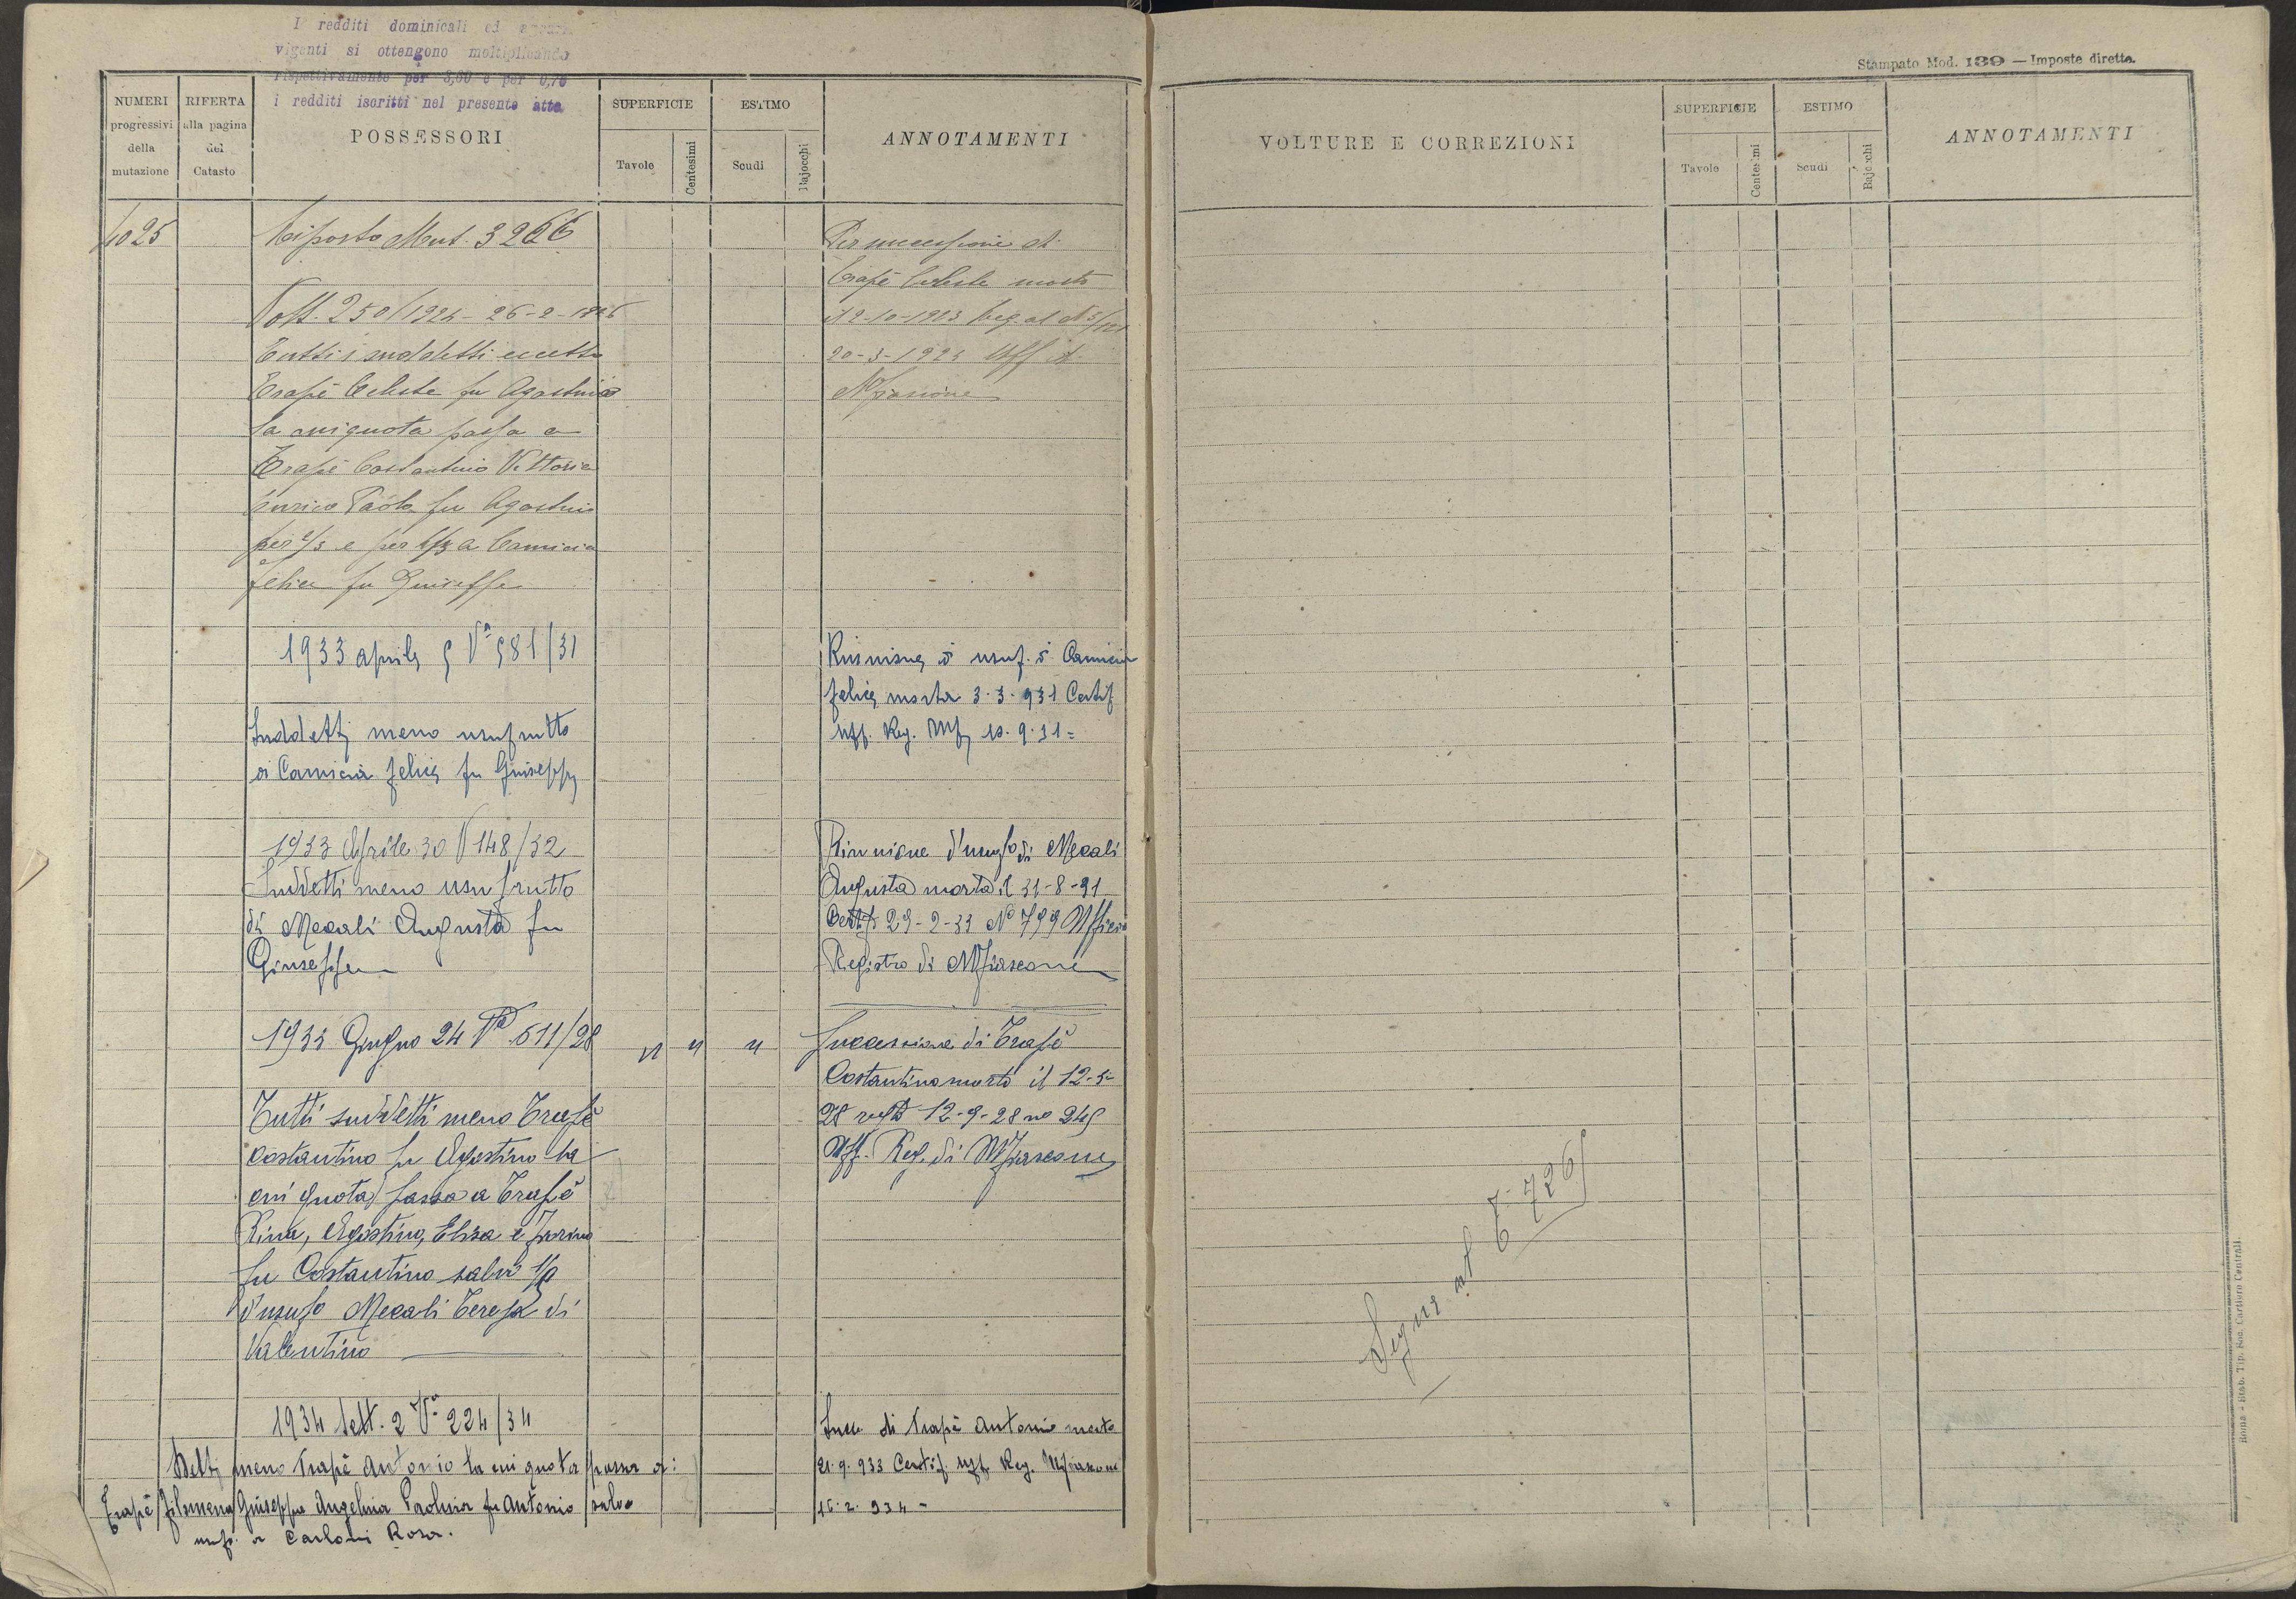 I redditi dominicali ed
vigenti si ottengono moltiplicando
rispettivamente per 3,60 e per 0,70
i redditi iscritti nel presente atto
Stampato Mod. 139 — Imposte dirette.
NUMERI
progressivi
della
mutazione
RIFERTA
alla pagina
del
Catasto
POSSESSORI
SUPERFICIE
Tavole
Centesimi
ESTIMO
Scudi
Bajocchi
ANNOTAMENTI
VOLTURE E CORREZIONI
SUPERFICIE
Tavole
Centesimi
ESTIMO
Scudi
Bajocchi
ANNOTAMENTI
4025
Riporto Mut. 3266
Volt. 250/1924 - 26-2-1926
Tutti i suddetti eccetto
Trapè Celeste fu Agostino
la cui quota passa a
Trapè Costantino Vittoria
Enrico Paolo fu Agostino
per 2/3 e per 1/3 a Camicia
Felice fu Giuseppe
Per successione di
Trapè Celeste morto
il 2-10-1923 Reg. al
20-3-1924 Uff. di
Mfiascone
1933 aprile 9 Va 981/31
Suddetti meno usufrutto
di Camicia Felice fu Giuseppe
Riunione di usuf. di Camicia
Felice morta 3.3.931 Certif
Uff. Reg. Mf 10.9.31=
1933 Aprile 30 V 148/32
Suddetti meno usufrutto
di Mecali Augusta fu
Giuseppe
Riunione d'usufo di Mecali
Augusta morta il 31-8-31
Certif 29-2-33 No 799 Ufficio
Registro di Mfiascone
1933 Giugno 24 Va 611/28
" " "
Tutti suddetti meno Trapè
Costantino fu Agostino la
cui quota passa a Trapè
Rina, Agostino, Elisa e
fu Costantino salvo
d'usufo Mecali Teresa di
Valentino
Successione di Trapè
Costantino morto il 12-5-
28 regto 12-9-28 no 249
Uff. Reg. di Mfiascone
1934 Sett. 2 Va 224/34
Detti meno Trapè Antonio la cui quota passa a:
Trapè Filomena Giuseppa Angelina Paolina fu Antonio salvo
usuf. a Carloni Rosa.
Succ. di Trapè Antonio morto
21.9.933 Certif. Uff. Reg. Mfiascone
15.2.934 -
Segue al 6-7261
Roma - Stab. Tip. Soc. Cartiere Centrali.